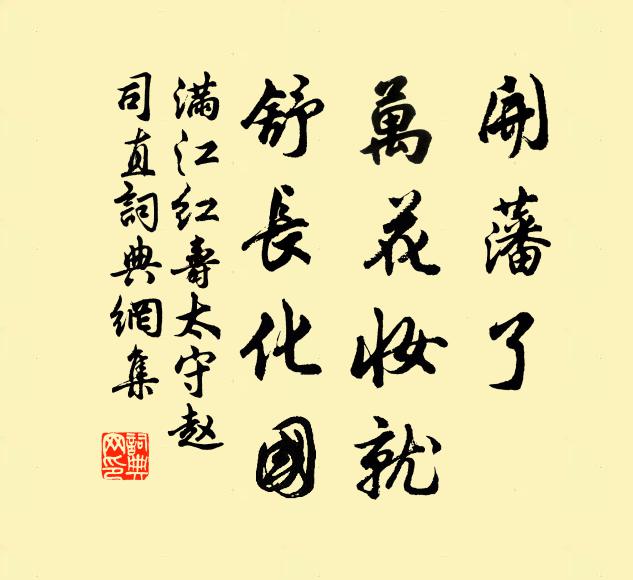 開藩了
萬花妝就
舒長化國
满江红壽太守赵
司直詞典網集
詞典网印